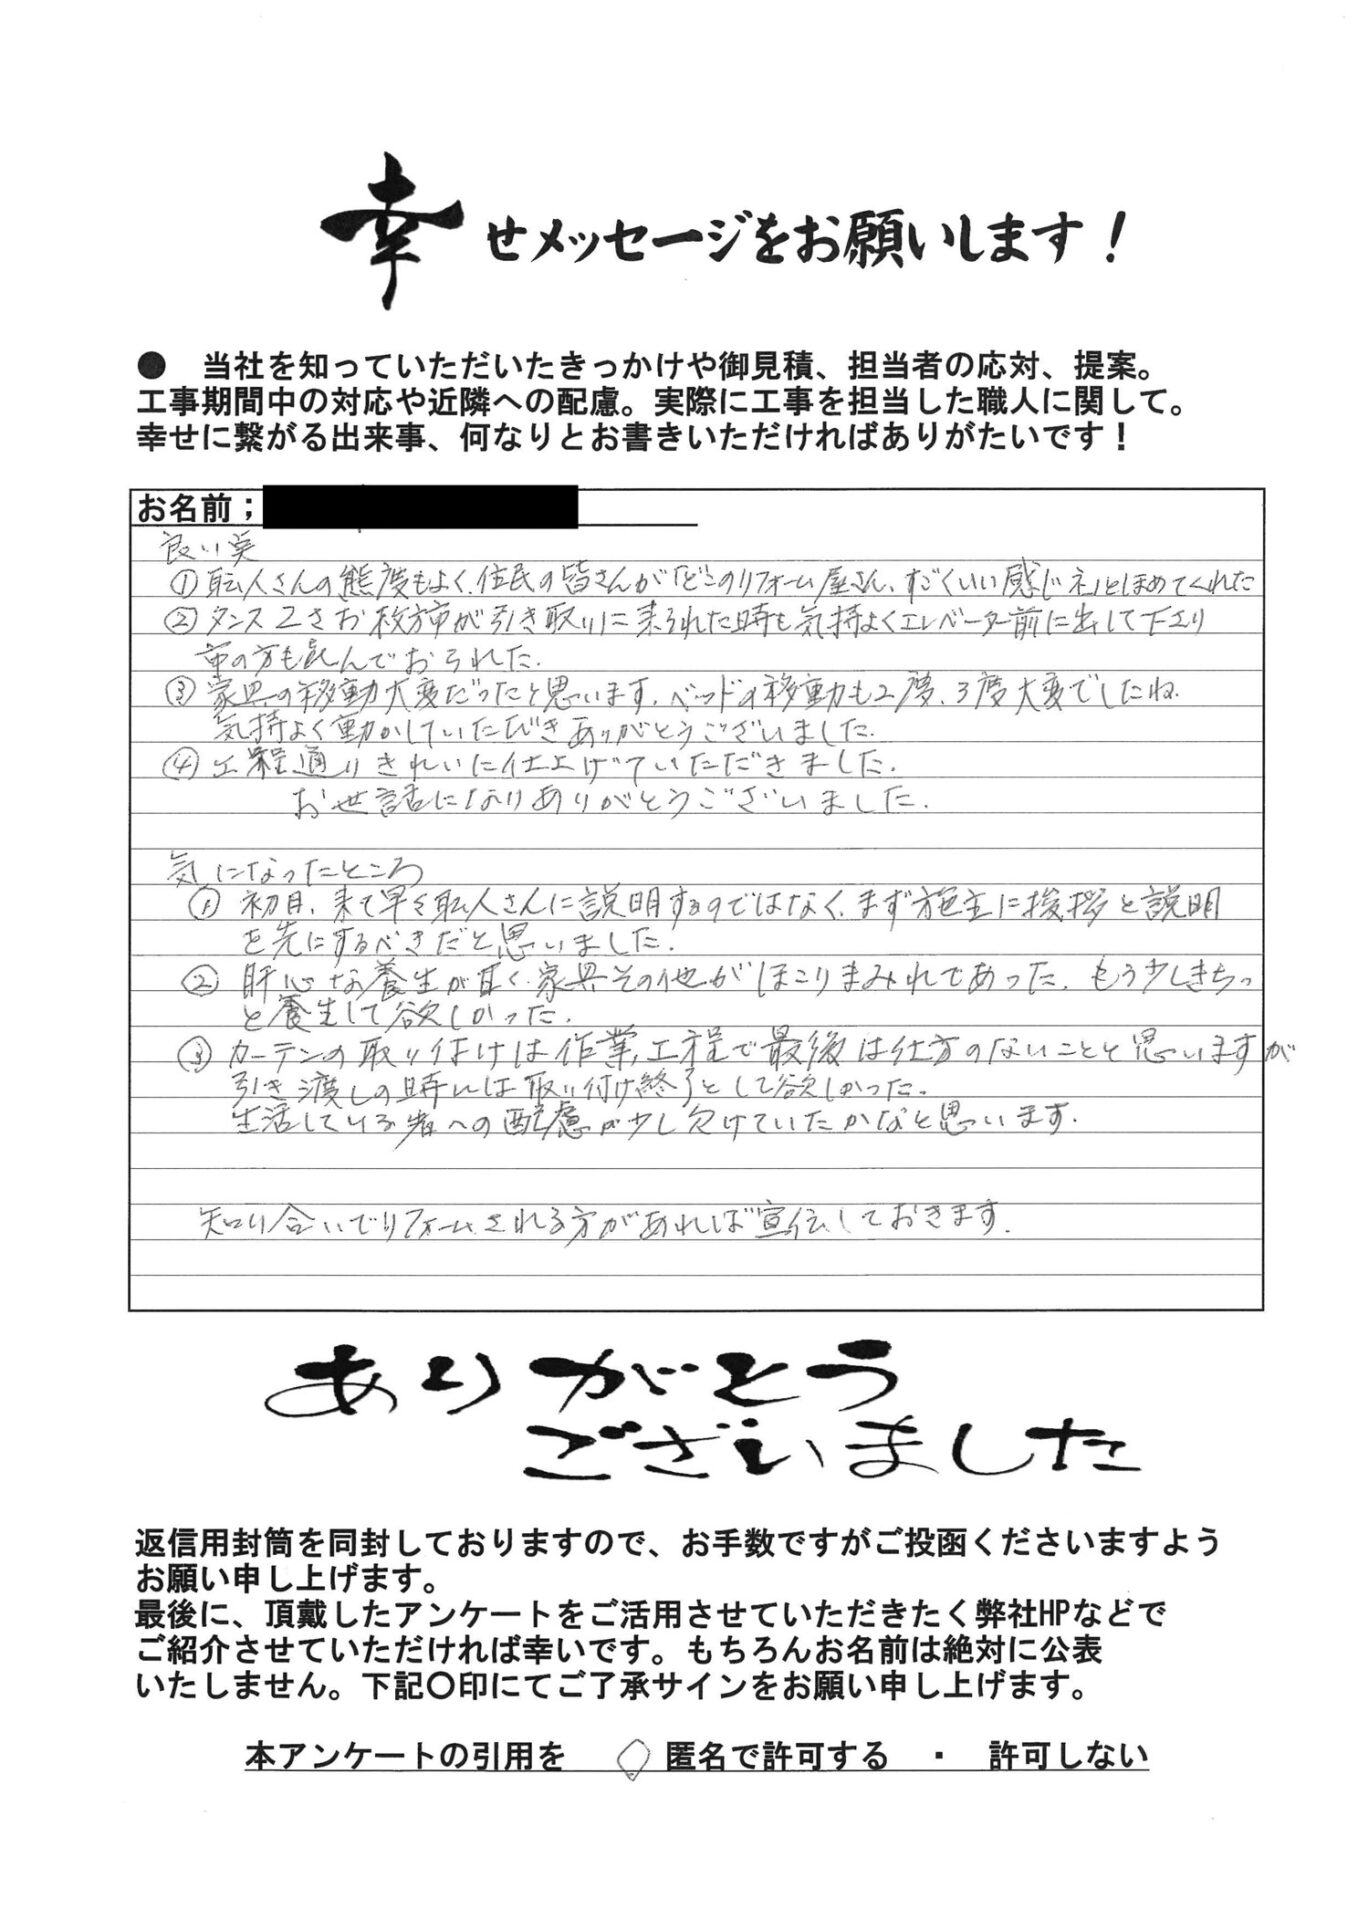 幸せメッセージをお願いします！
● 当社を知っていただいたきっかけや御見積、担当者の応対、提案。
工事期間中の対応や近隣への配慮。実際に工事を担当した職人に関して。
幸せに繋がる出来事、何なりとお書きいただければありがたいです！
お名前；
良い点
①職人さんの態度もよく、住民の皆さんが「どこのリフォーム屋さん、すごくいい感じネ」とほめてくれた
②タンス2さお枚方市が引き取りに来られた時も気持よくエレベーター前に出して下さり
市の方も喜んでおられた.
③家具の移動大変だったと思います.ベッドの移動も2度、3度大変でしたね.
気持よく動かしていただきありがとうございました.
④工程通りきれいに仕上げていただきました.
お世話になりありがとうございました.
気になったところ
① 初日、来て早々職人さんに説明するのではなく、まず施主に挨拶と説明
を先にするべきだと思いました.
② 肝心な養生が甘く、家具その他がほこりまみれであった. もう少しきちっ
と養生して欲しかった.
③ カーテンの取り付けは作業,工程で最後は仕方のないことと思いますが
引き渡しの時には取り付け終了として欲しかった.
生活している者への配慮が少し欠けていたかなと思います.
知り合いでリフォームされる方があれば宣伝しておきます.
ありがとう
ございました
返信用封筒を同封しておりますので、お手数ですがご投函くださいますよう
お願い申し上げます。
最後に、頂戴したアンケートをご活用させていただきたく弊社HPなどで
ご紹介させていただければ幸いです。もちろんお名前は絶対に公表
いたしません。下記〇印にてご了承サインをお願い申し上げます。
本アンケートの引用を 〇 匿名で許可する ・ 許可しない